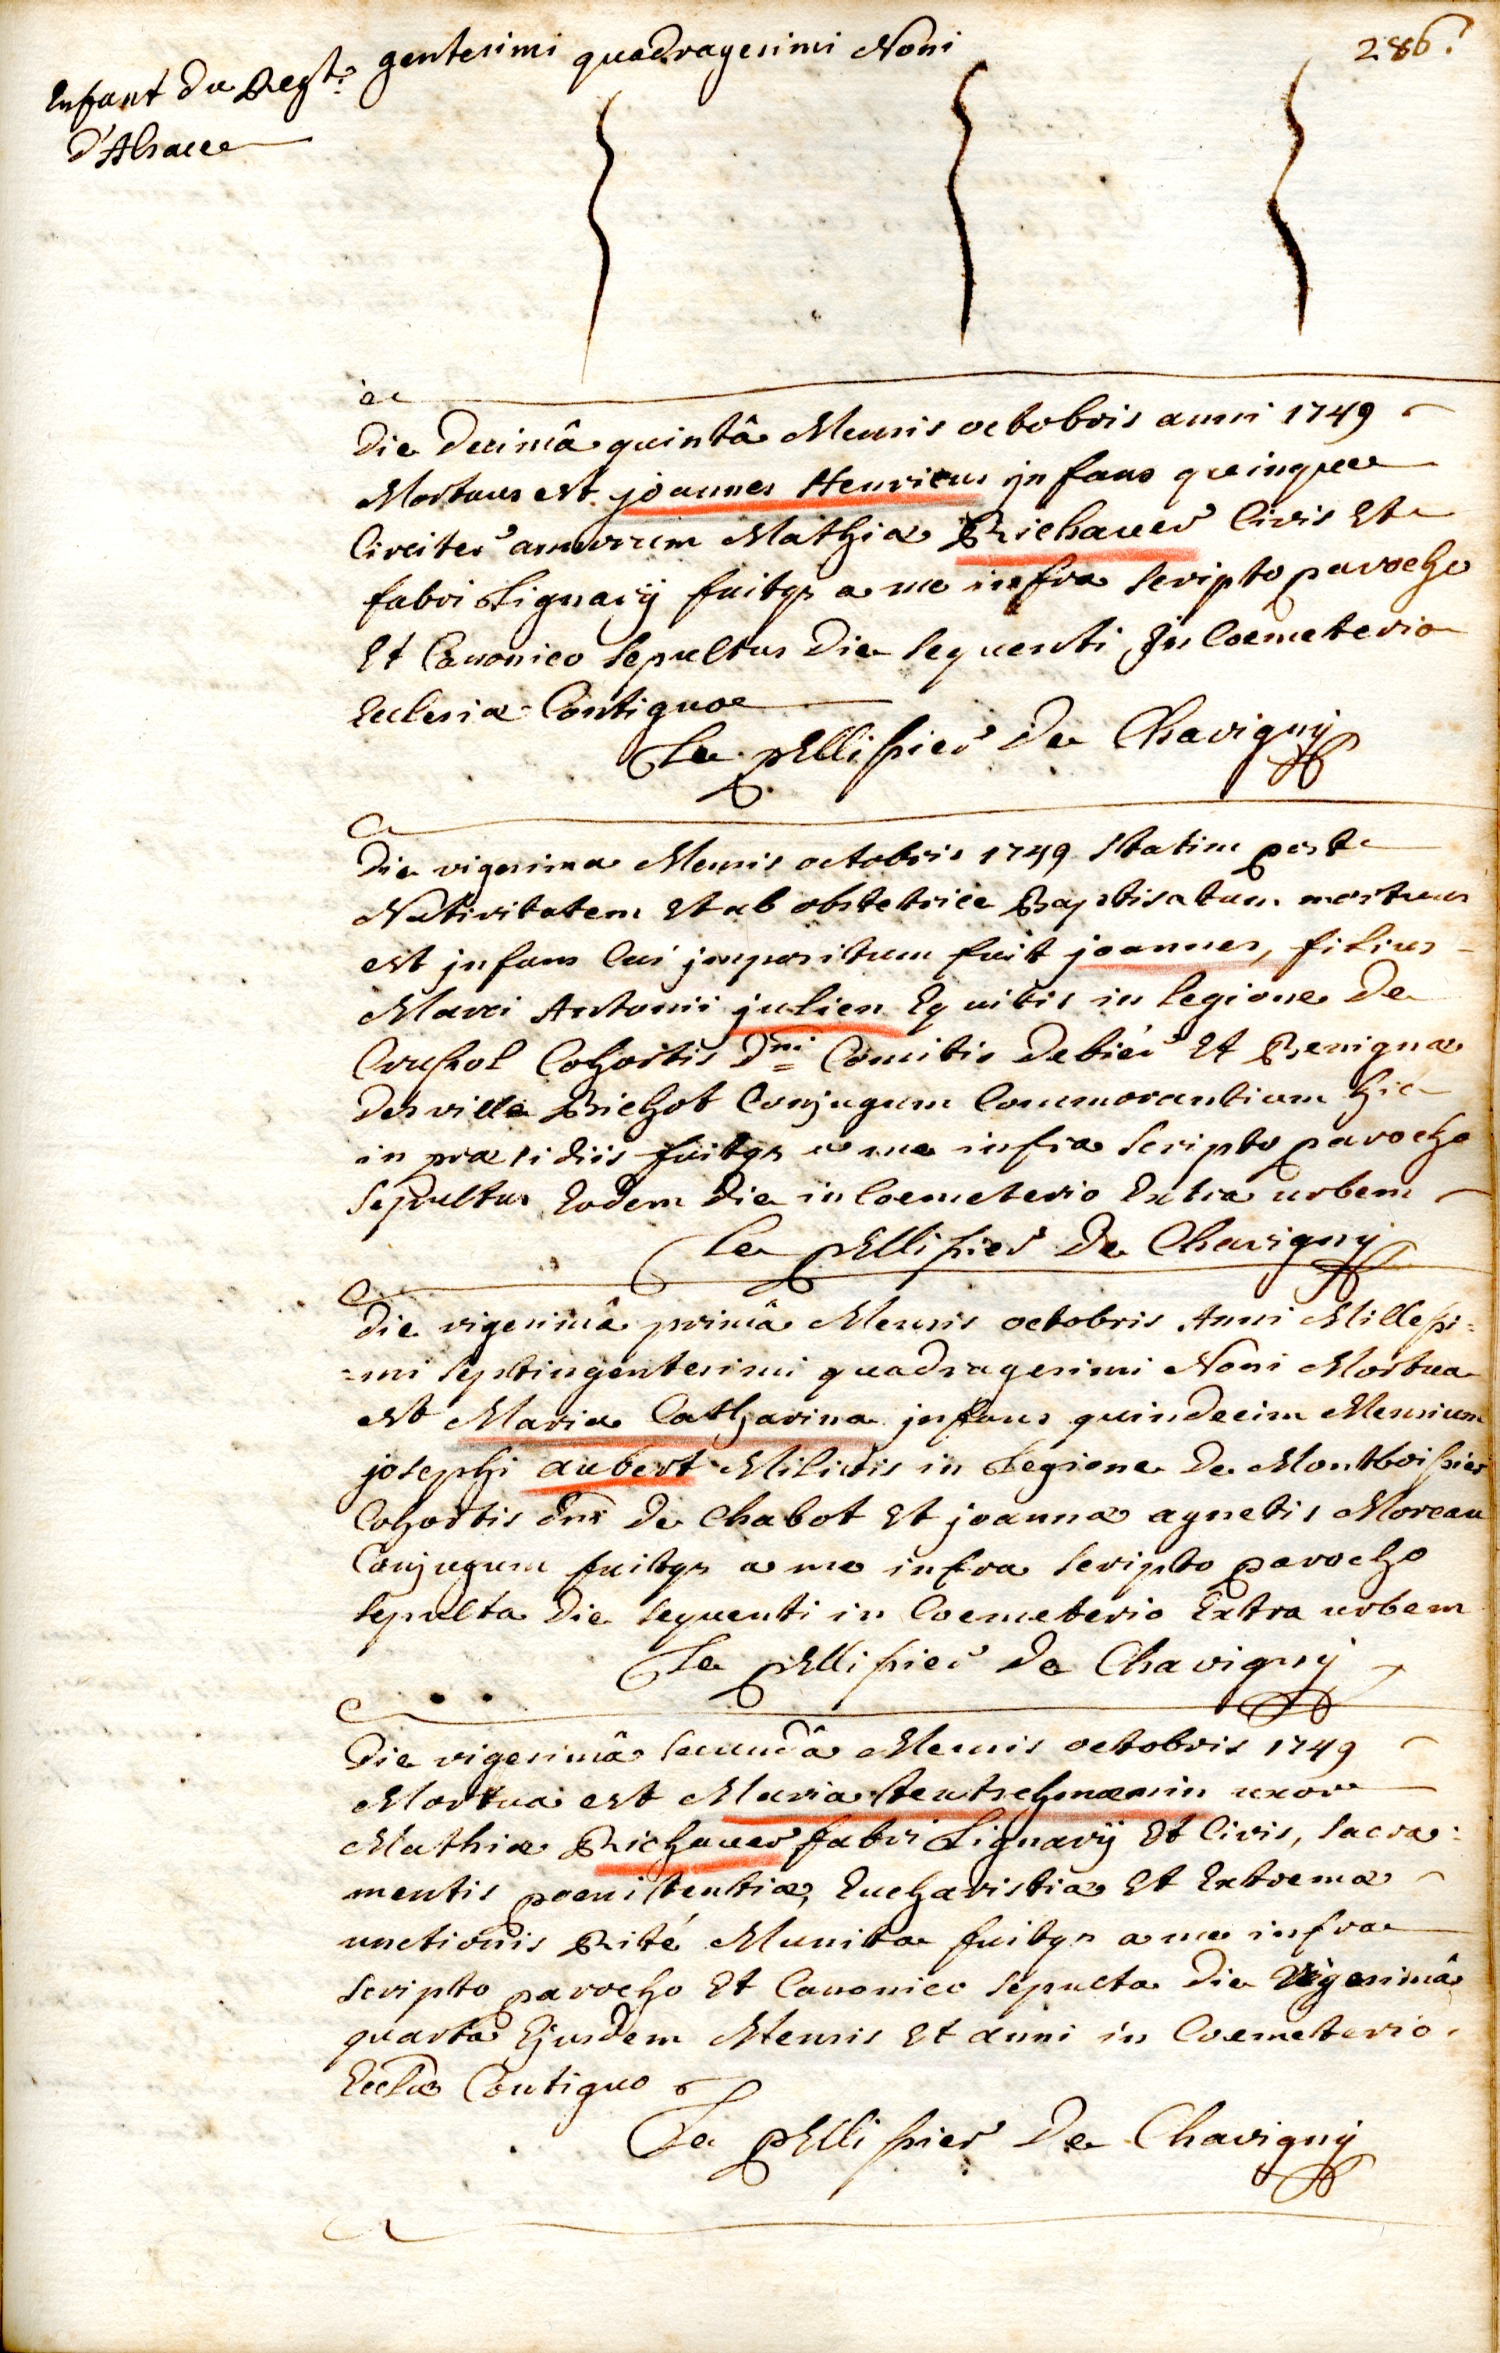 gentesimi quadragesimi Noni
286.
Enfant du Regt.
d'Alsace
Die decimâ quintâ Mensis octobris anni 1749
Mortuus est joannes Henricus jnfans quinque
Circiter annorum Mathiæ Richauer Civis Et
fabri Lignarij fuitqs a me infra scripto parocho
Et Canonico sepultus die sequenti Jn Coemeterio
Ecclesiæ Contiguo
Le pEllissier De Chavigny
Die vigesima Mensis octobris 1749 statim post
Nativitatem Et ab obstetrice Baptisatum mortuus
est jnfans Cui jmpositum fuit joannes, filius
Marci Antonii julien Equitis in legione De
Crussol Cohortis Dni Comitis Debiér Et Benignæ
Desville Richot Conjugum Commorantium hic
in præsidiis fuitqs a me infra scripto parocho
sepultus Eodem die in Coemeterio Extra urbem
Le pEllissier De Chavigny
Die vigesimâ primâ Mensis octobris Anni Millessi=
=mi septingentesimi quadragesimi Noni Mortua
est Maria Catharina jnfans quindecim Mensium
josephi aubert Militis in Legione De Montboissier
Cohortis dni De Chabot Et joannæ agnetis Moreau
Conjugum fuitqs a me infra scripto parocho
sepulta die sequenti in Coemeterio Extra urbem
Le pEllissier De Chavigny
Die vigesimâ secundâ Mensis octobris 1749
Mortua est Maria teutschmænin uxor
Mathiæ Richauer fabri Lignarij Et Civis, sacra=
mentis poenitentiæ, Eucharistiæ Et Extremæ
unctionis Rité Munita fuitqs a me infra
scripto parocho Et Canonico sepulta die Vigesimâ
quarta Ejusdem Mensis Et anni in Coemeterio
Ecclæ Contiguo
Le pEllissier De Chavigny